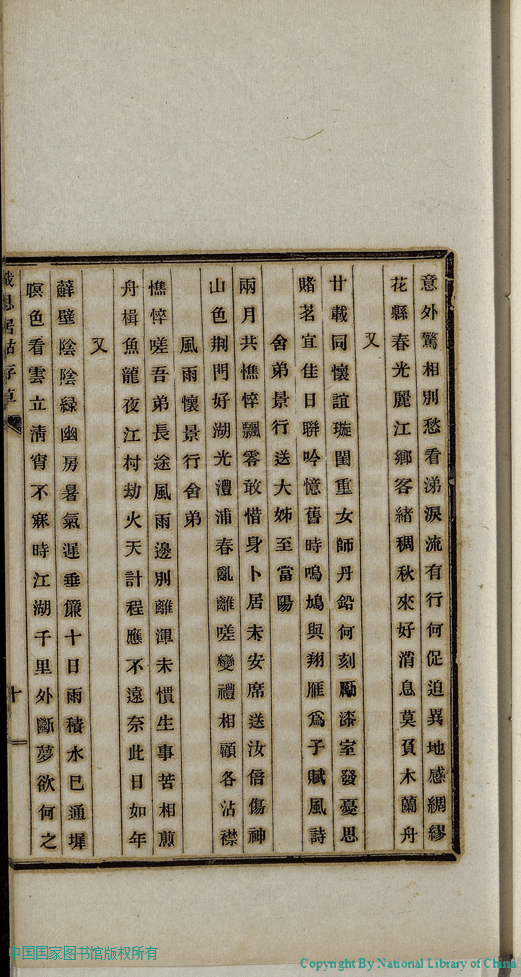 意外驚相別愁看涕淚流有行何促迫異地感綢繆
花縣春光麗江鄉客緒稠秋來好消息莫負木蘭舟
又
廿載同懷誼璇閨重女師丹鉛何刻勵漆室發憂思
賭茗宜佳日聯吟憶舊時鳴鳩與翔雁為子賦風詩
舍弟景行送大姊至富陽
兩月共憔悴飄零敢惜身卜居未安席送汝倍傷神
山色荆門好湖光澧浦春亂離嗟變禮相顧各沾襟
風雨懷景行舍弟
憔悴嗟吾弟長途風雨邊別離渾未慣生事苦相煎
舟楫魚龍夜江村劫火天計程應不遠奈此日如年
又
薜壁陰陰緑幽房暑氣遲垂簾十日雨積水已通墀
暝色看雲立清宵不寐時江湖千里外斷夢欲何之
十
中国国家图书馆版权所有
Copyright By National Library of China